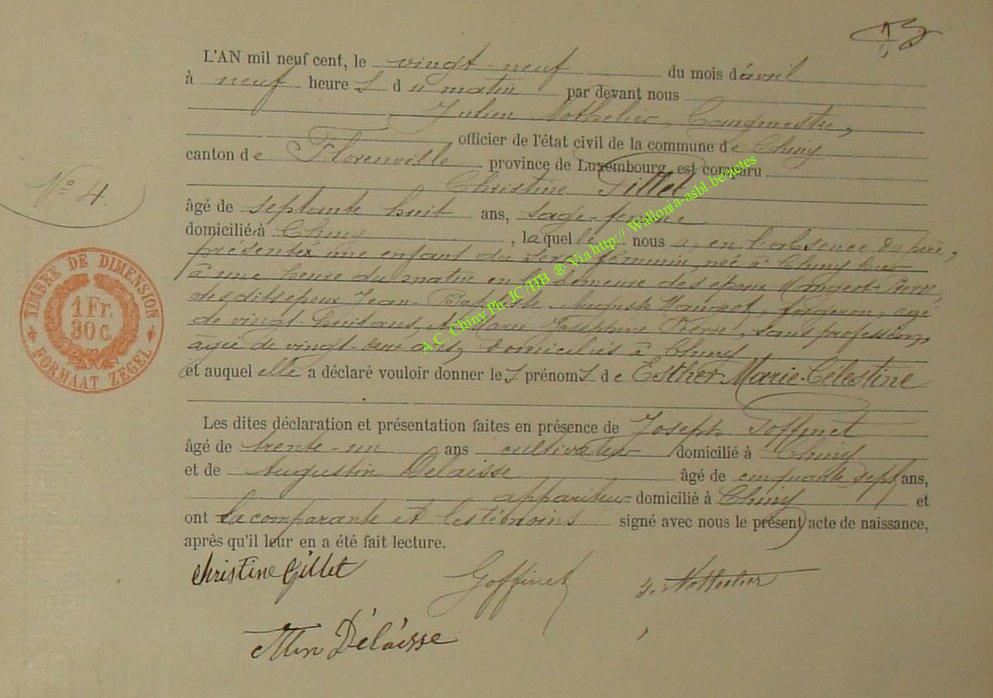 L'AN mil neuf cent, le vingt-neuf du mois d'avril
à neuf heure s d u matin par devant nous
Julien Nothelier, Bourgmestre,
officier de l'état civil de la commune de Chiny
canton de Florenville province de Luxembourg, est comparu
Christine Gillet
âgé de septante huit ans, sage-femme
domicilié à Chiny, laquelle nous a, en l'absence du père,
présenté une enfant du sexe féminin, née à Chiny
à une heure du matin en la demeure des époux Mangeot-Pierre
des dits époux Jean-Baptiste Auguste Mangeot, forgeron, âgé
de vingt huit ans, et Marie Joséphine Pierre, sans profession
âgée de vingt-deux ans, domiciliés à Chiny
et auquel elle a déclaré vouloir donner le s prénom s de Esther-Marie-Célestine
Les dites déclaration et présentation faites en présence de Joseph Goffinet
âgé de trente-un ans cultivateur domicilié à Chiny
et de Augustin Delaisse âgé de cinquante sept ans,
appariteur domicilié à Chiny et
ont la comparante et les témoins signé avec nous le présent acte de naissance,
après qu'il leur en a été fait lecture.
Christine Gillet Goffinet J. Nothelier
Délaisse
N° 4.
TIMBRE DE DIMENSION
1 Fr.
30 c.
FORMAAT ZEGEL
A.C Chiny Ph JC /HB ® Via http:// Wallonia-asbl.be/actes